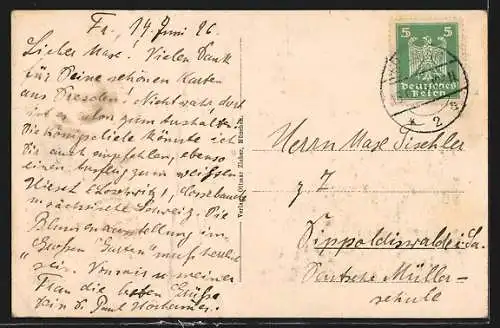 Fr., 14. Juni 26.
Lieber Max! Vielen Dank
für Deine schönen Karten
aus Dresden! Nicht wahr, dort
ist es schon zum Aushalten!
Die könnte ich
Dir auch empfehlen, ebenso
einen Ausflug zum weissen
Hirsch, Loschwitz,
sächsische Schweiz. Die
Blumenausstellung im
"Großen Garten" muß herrlich
sein. Von mir u. meiner
Frau die besten Grüße
Dein Paul
Verlag Ottmar Zieher, München.
5 5
Deutsches
Reich
* 2 a
Herrn Max Tischler
z. Z.
Dippoldiswalde i. Sa.
Deutsche Müller-
schule